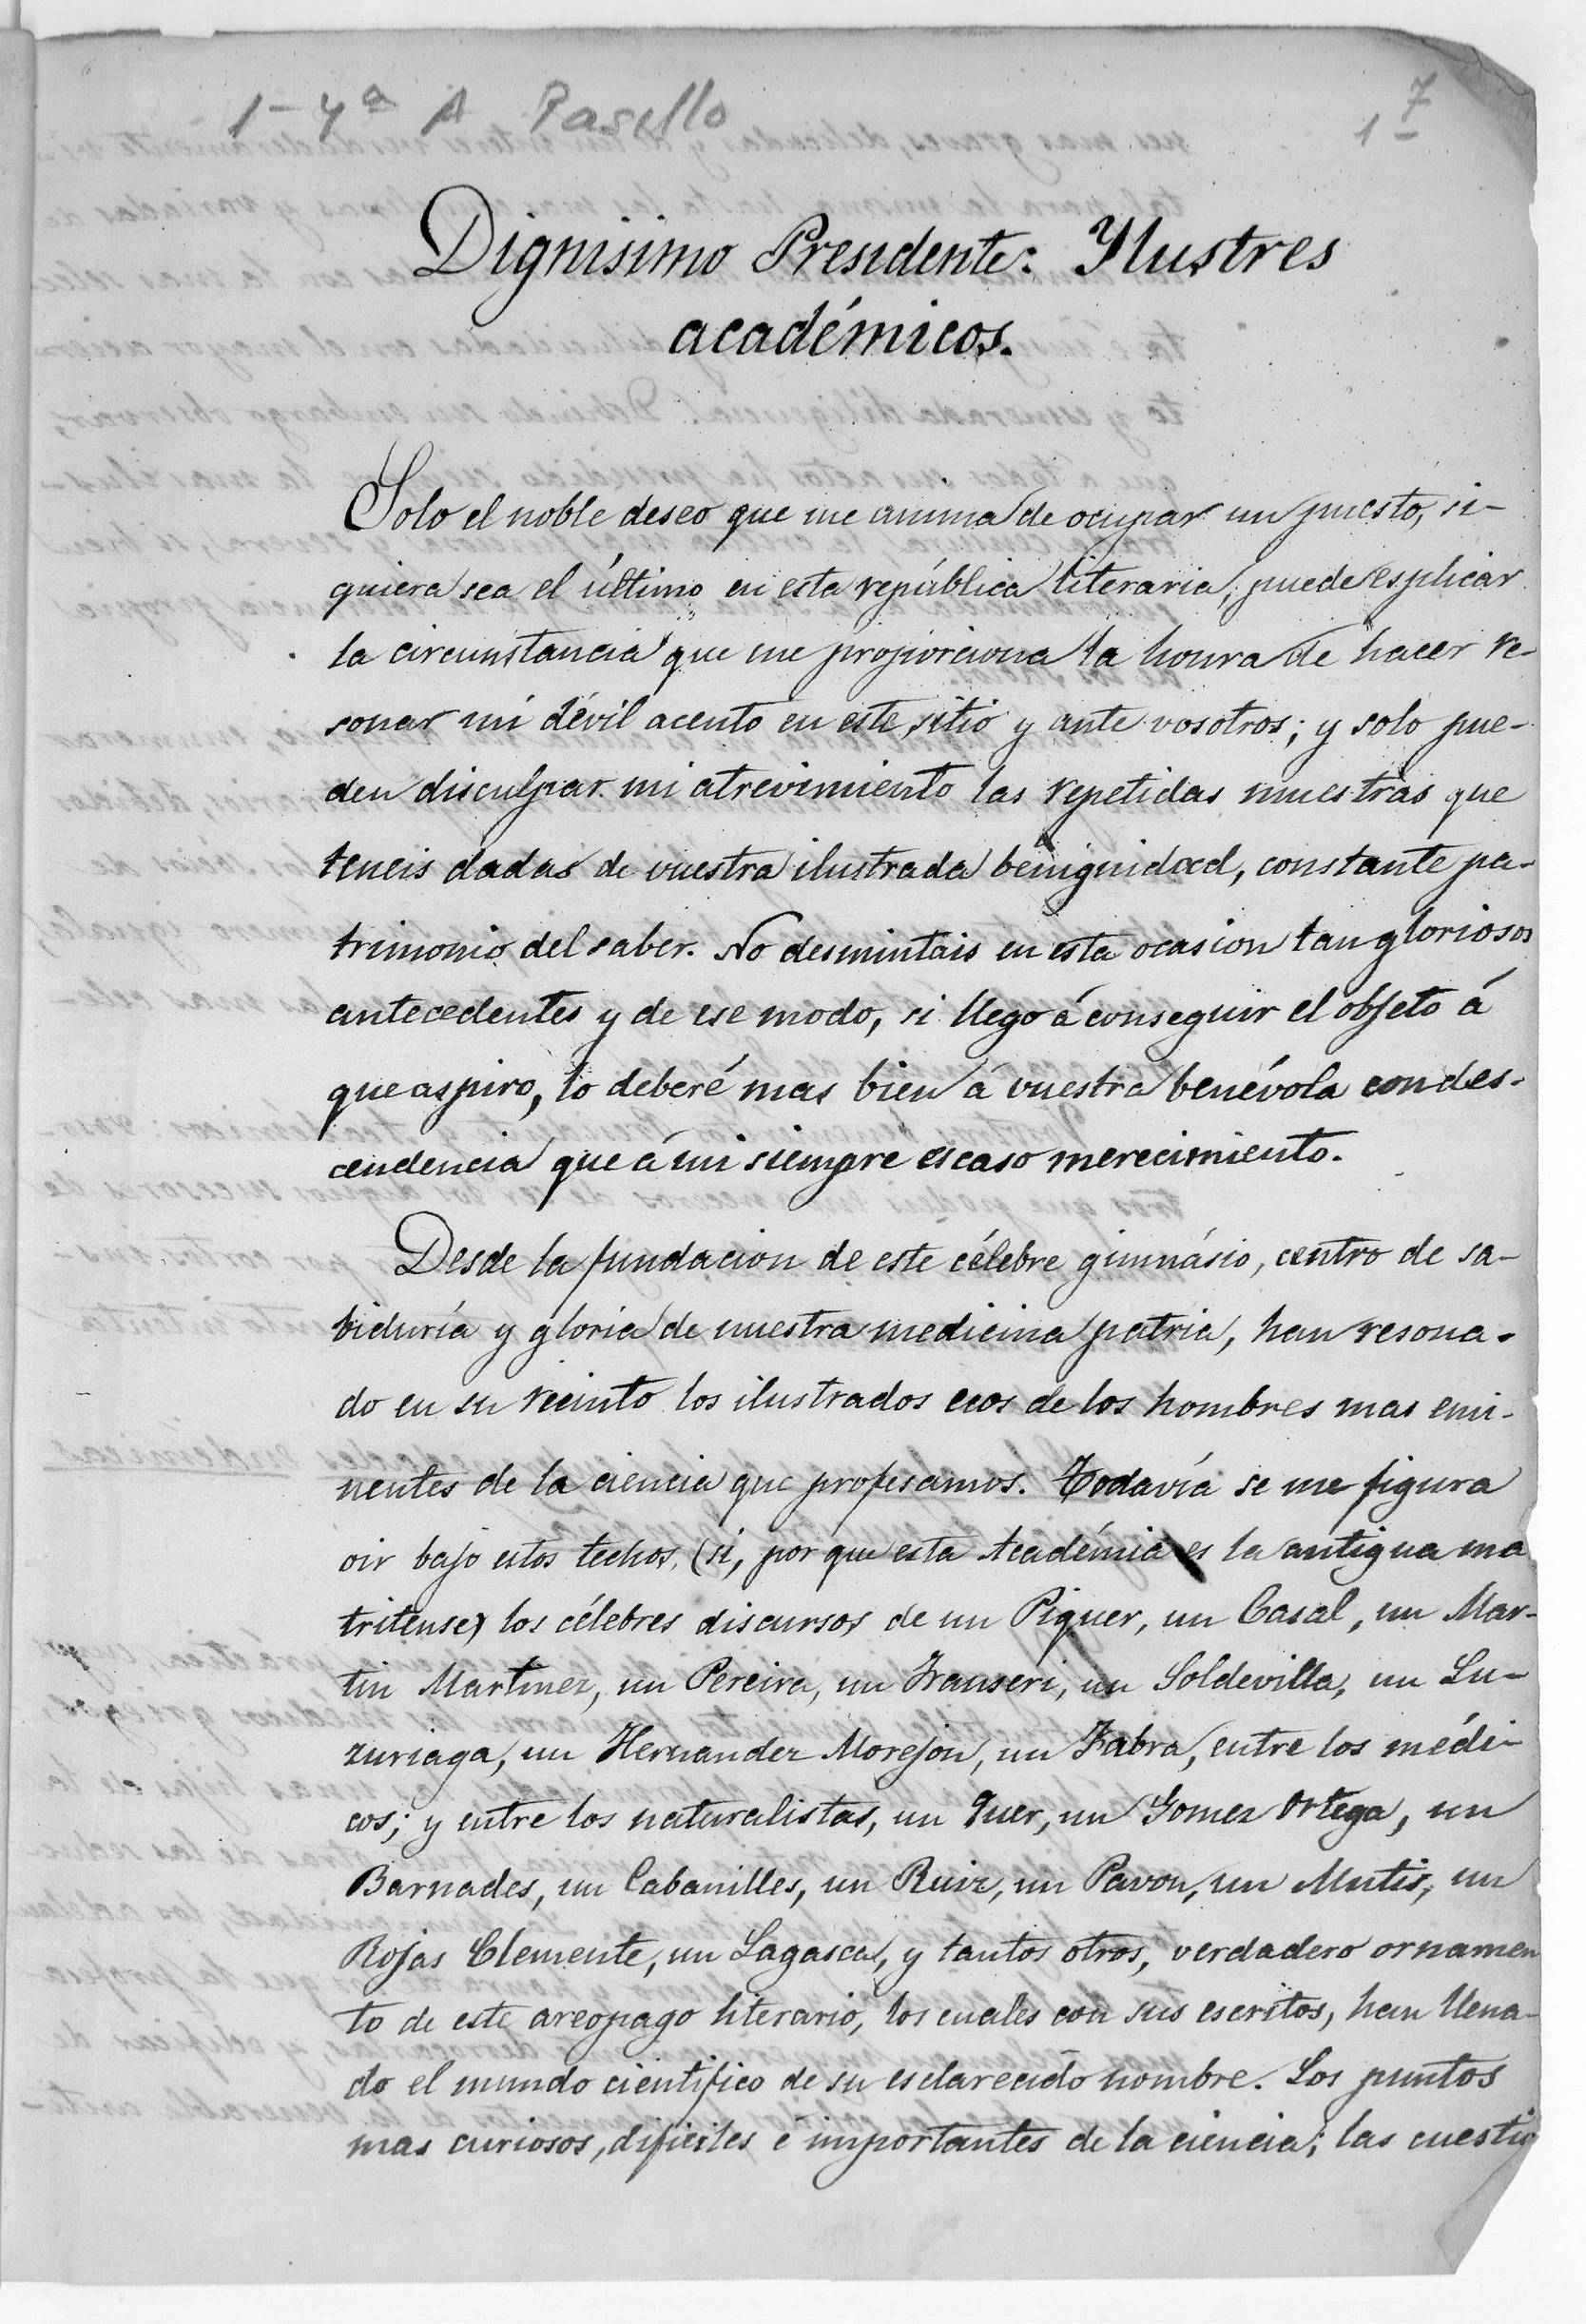 1-4ª A Pasillo
7
1
Dignisimo Presidente: Ylustres
académicos.
Solo el noble deseo que me anima de ocupar un puesto, si-
quiera sea el último en esta república literaria, puede esplicar
la circunstancia que me proporciona la honra de hacer re-
sonar mi dévil acento en este sitio y ante vosotros; y solo pue-
den disculpar mi atrevimiento las repetidas muestras que
teneis dadas de vuestra ilustrada benignidad, constante pa-
trimonio del saber. No desmintais en esta ocasion tan gloriosos
antecedentes y de ese modo, si llego á conseguir el objeto á
que aspiro, lo deberé mas bien á vuestra benévola condes-
cendencia que á mi siempre escaso merecimiento.
Desde la fundacion de este célebre gimnásio, centro de sa-
biduría y gloria de nuestra medicina patria, han resona-
do en su recinto los ilustrados ecos de los hombres mas emi-
nentes de la ciencia que profesamos. Todavía se me figura
oir bajo estos techos, (si, por que esta Académia es la antigua ma
tritense) los célebres discursos de un Piquer, un Casal, un Mar-
tin Martinez, un Pereira, un Franseri, un Soldevilla, un Lu-
zuriaga, un Hernandez Morejon, un Fabra, entre los médi-
cos; y entre los naturalistas, un Quer, un Gomez Ortega, un
Barnades, un Cabanilles, un Ruiz, un Pavon, un Mutis, un
Rojas Clemente, un Lagasca, y tantos otros, verdadero ornamen
to de este areopago literario, los cuales con sus escritos, han llena-
do el mundo cientifico de su esclarecido nombre. Los puntos
mas curiosos, dificiles é importantes de la ciencia; las cuestio